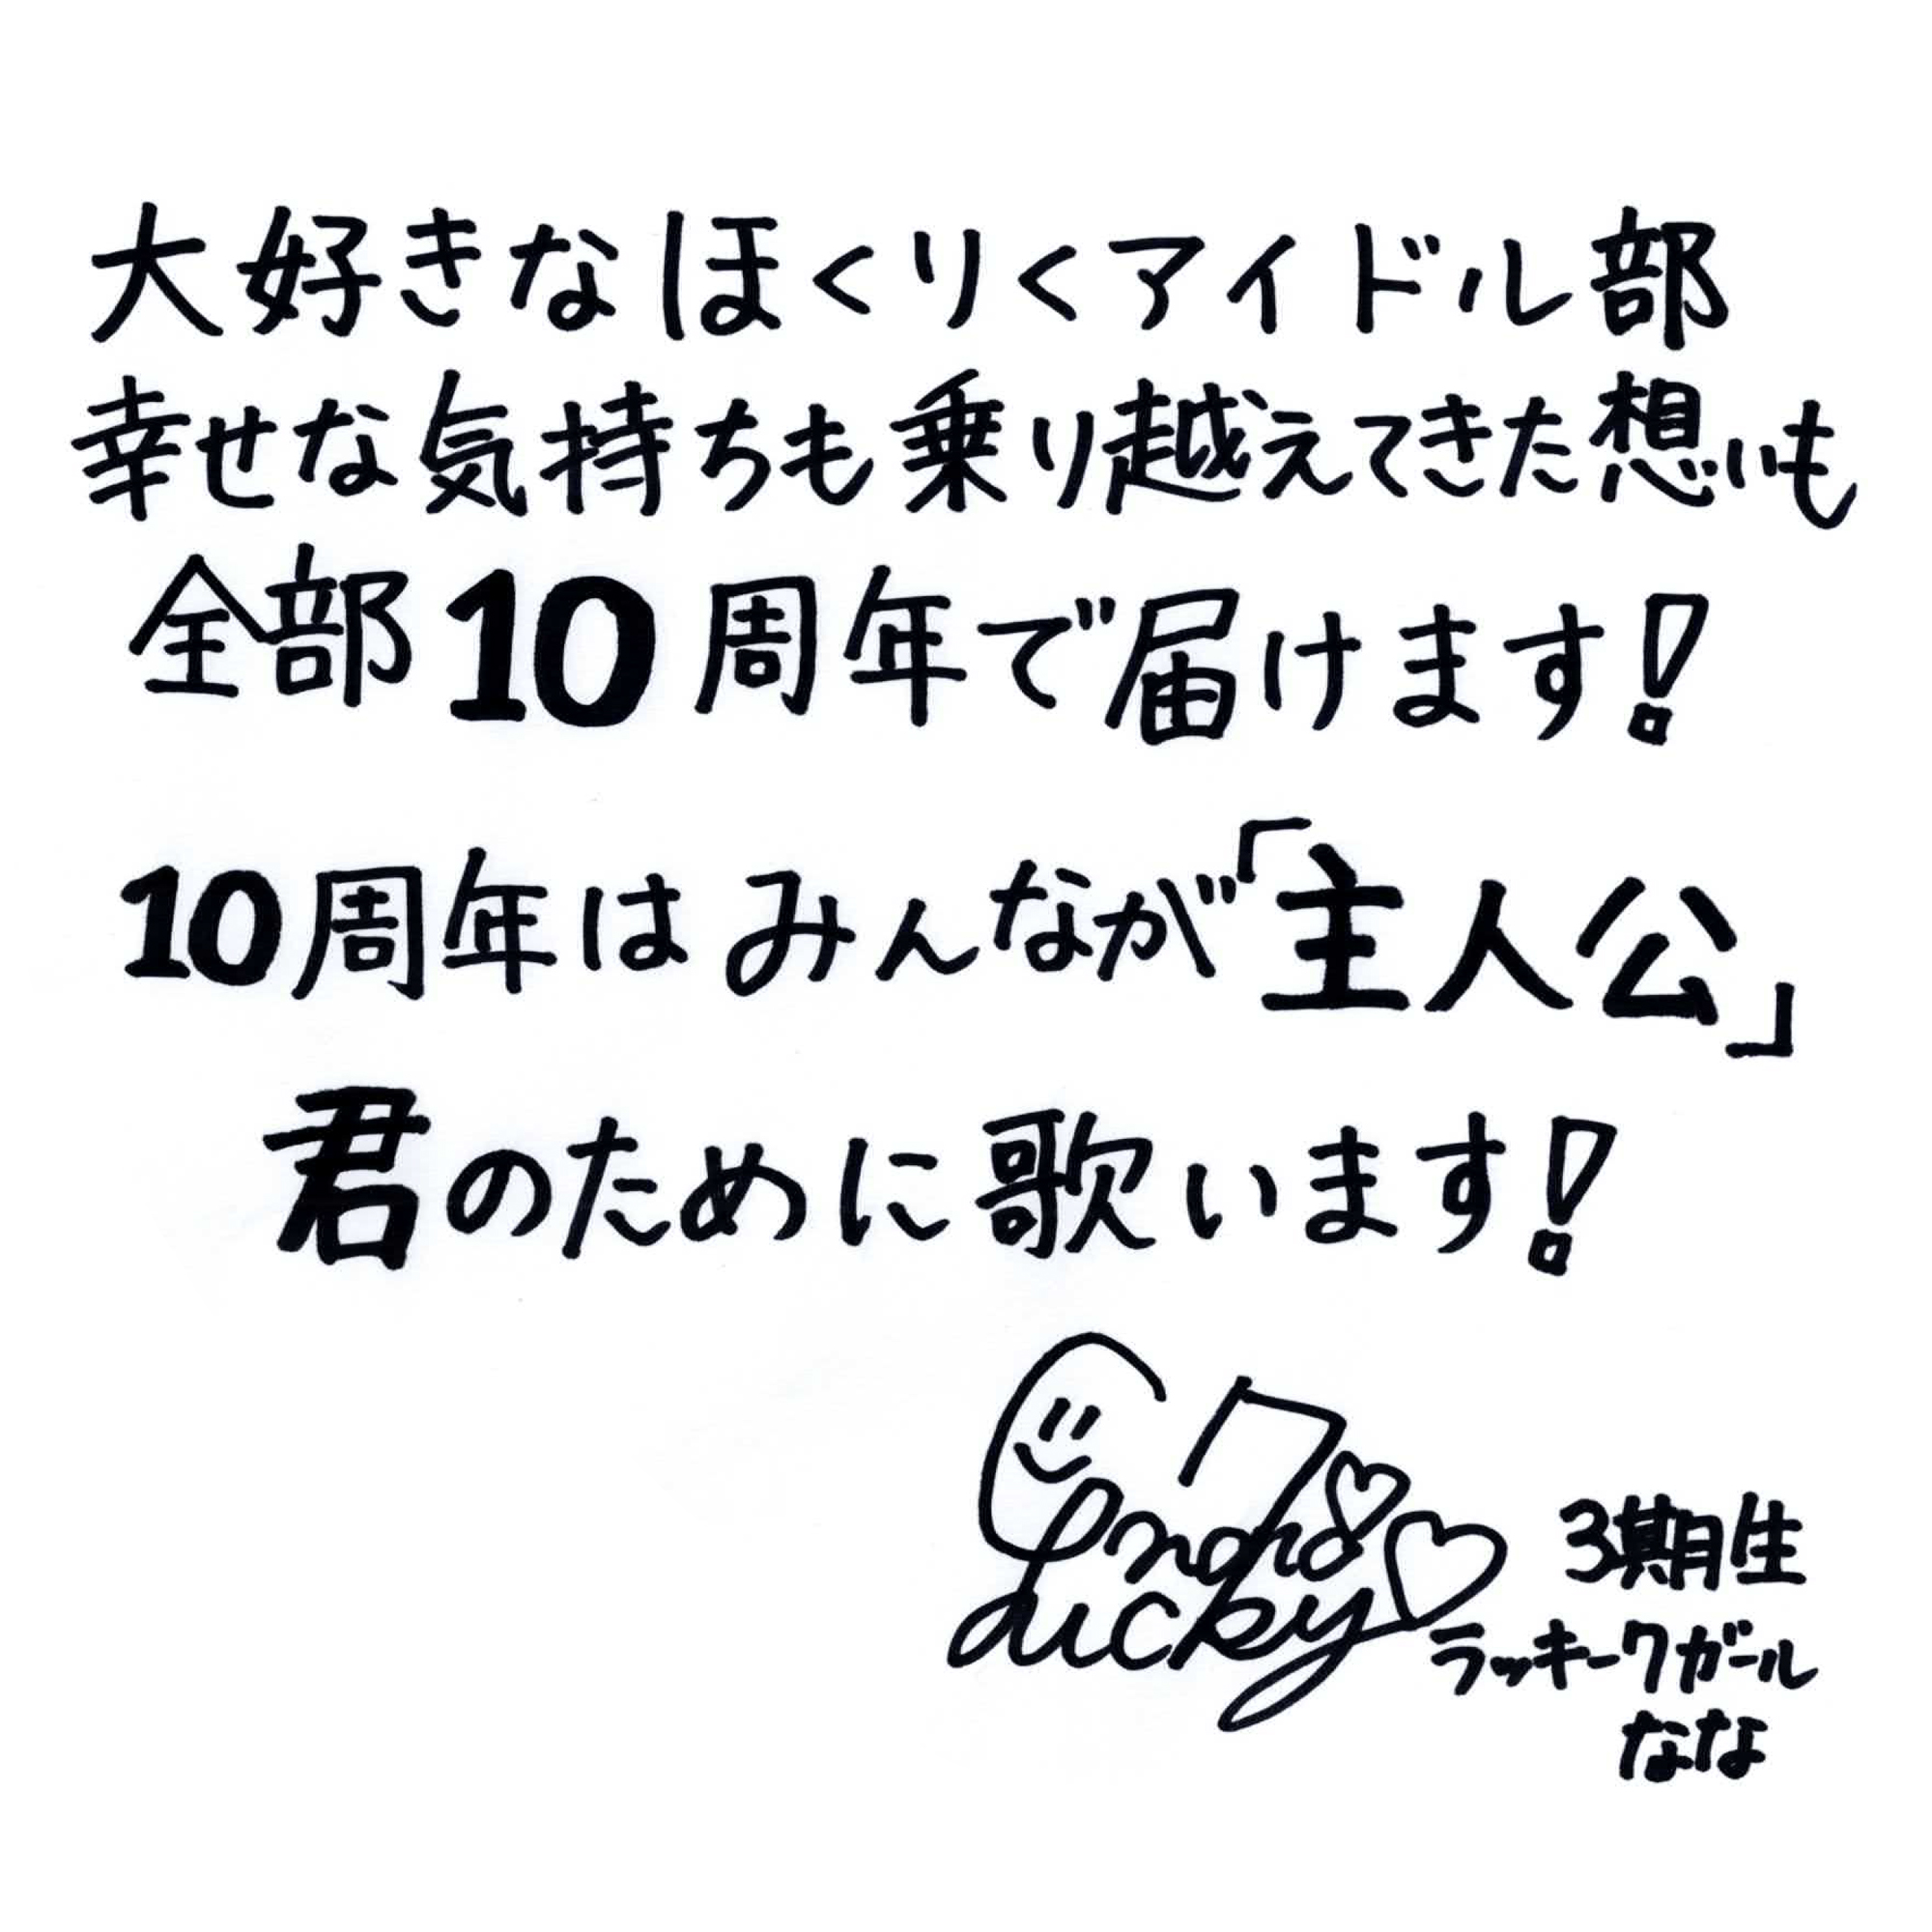 大好きなほくりくアイドル部
幸せな気持ちも乗り越えてきた想いも
全部10周年で届けます!
10周年はみんなが「主人公」
君のために歌います!
7
nana
Lucky
3期生
ラッキー7ガール
なな